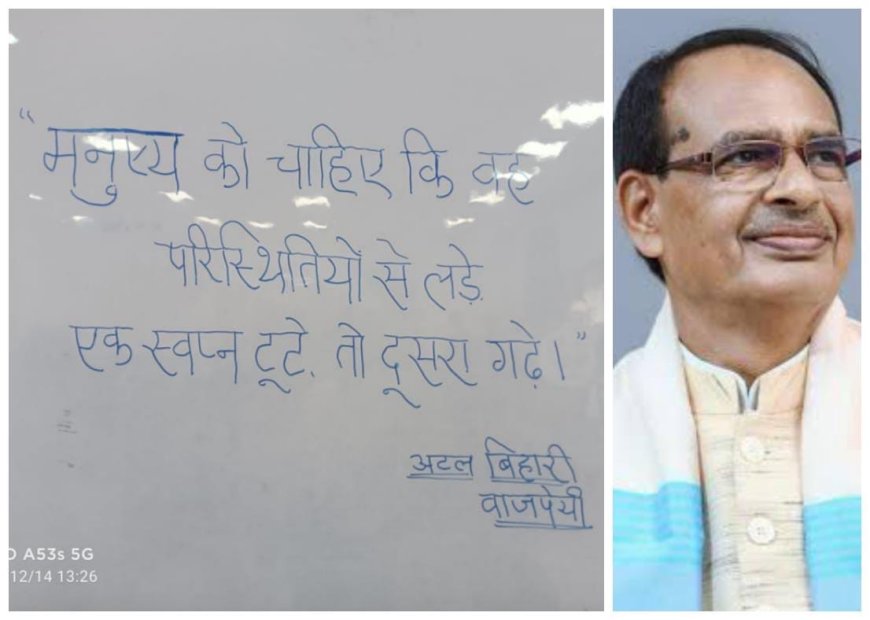 "मनुष्य को चाहिए कि वह
परिस्थितियों से लड़े
एक स्वप्न टूटे, तो दूसरा गढ़े।"
अटल बिहारी
वाजपेयी
A53s 5G
12/14 13:26